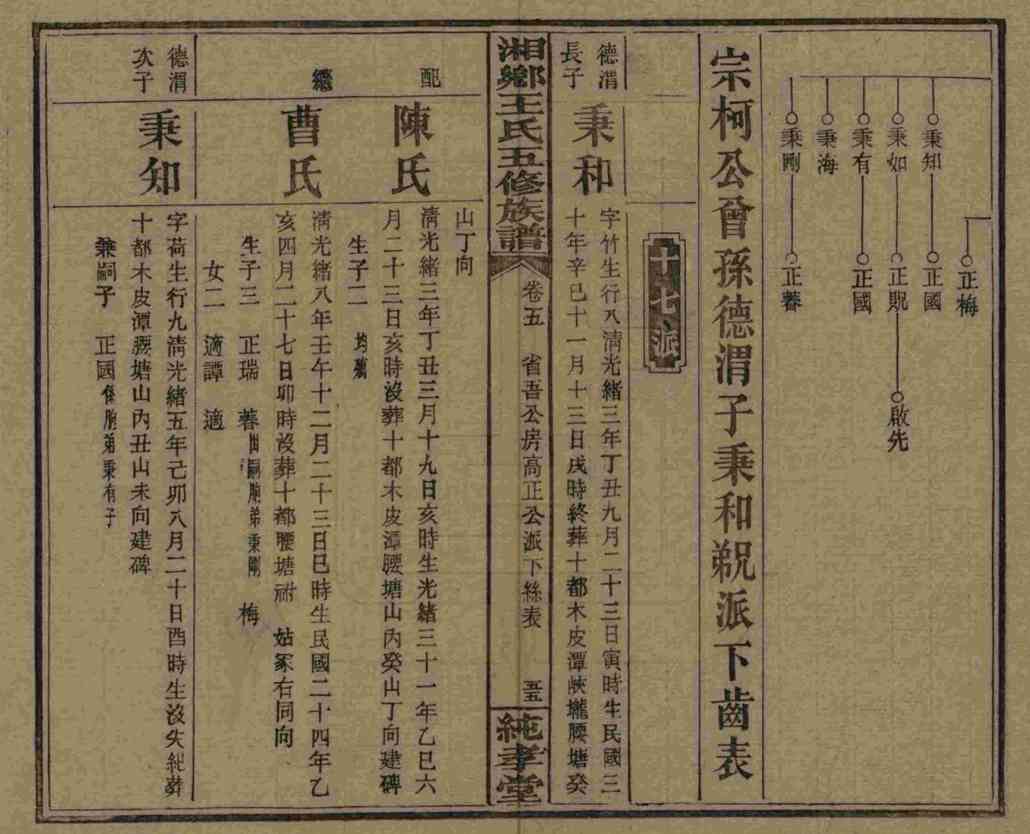 正梅
秉知 正國
秉如 正賑 啟先
秉有 正國
秉海
秉剛 正蓍
宗柯公曾孫德渭子秉和弟兄派下齒表
十七派
德渭
長子
秉和
字竹生行八清光緒三年丁丑九月二十三日寅時生民國三
十年辛巳十一月十三日戌時終葬十都木皮潭峽壠腰塘癸
湘鄉王氏五修族譜
卷五 省吾公房高正公派下絲表 五五
純孝堂
山丁向
配
陳氏
清光緒三年丁丑三月十九日亥時生光緒三十一年乙巳六
月二十三日亥時沒葬十都木皮潭腰塘山內癸山丁向建碑
生子二 均殤
繼
曹氏
清光緒八年壬午十二月二十三日巳時生民國二十四年乙
亥四月二十七日卯時沒葬十都腰塘祔 姑冢右同向
生子三 正瑞 蓍出嗣胞弟秉剛 梅
女二 適譚 適
德渭
次子
秉知
字荷生行九清光緒五年己卯八月二十日酉時生沒失紀葬
十都木皮潭腰塘山內丑山未向建碑
兼嗣子 正國係胞弟秉有子